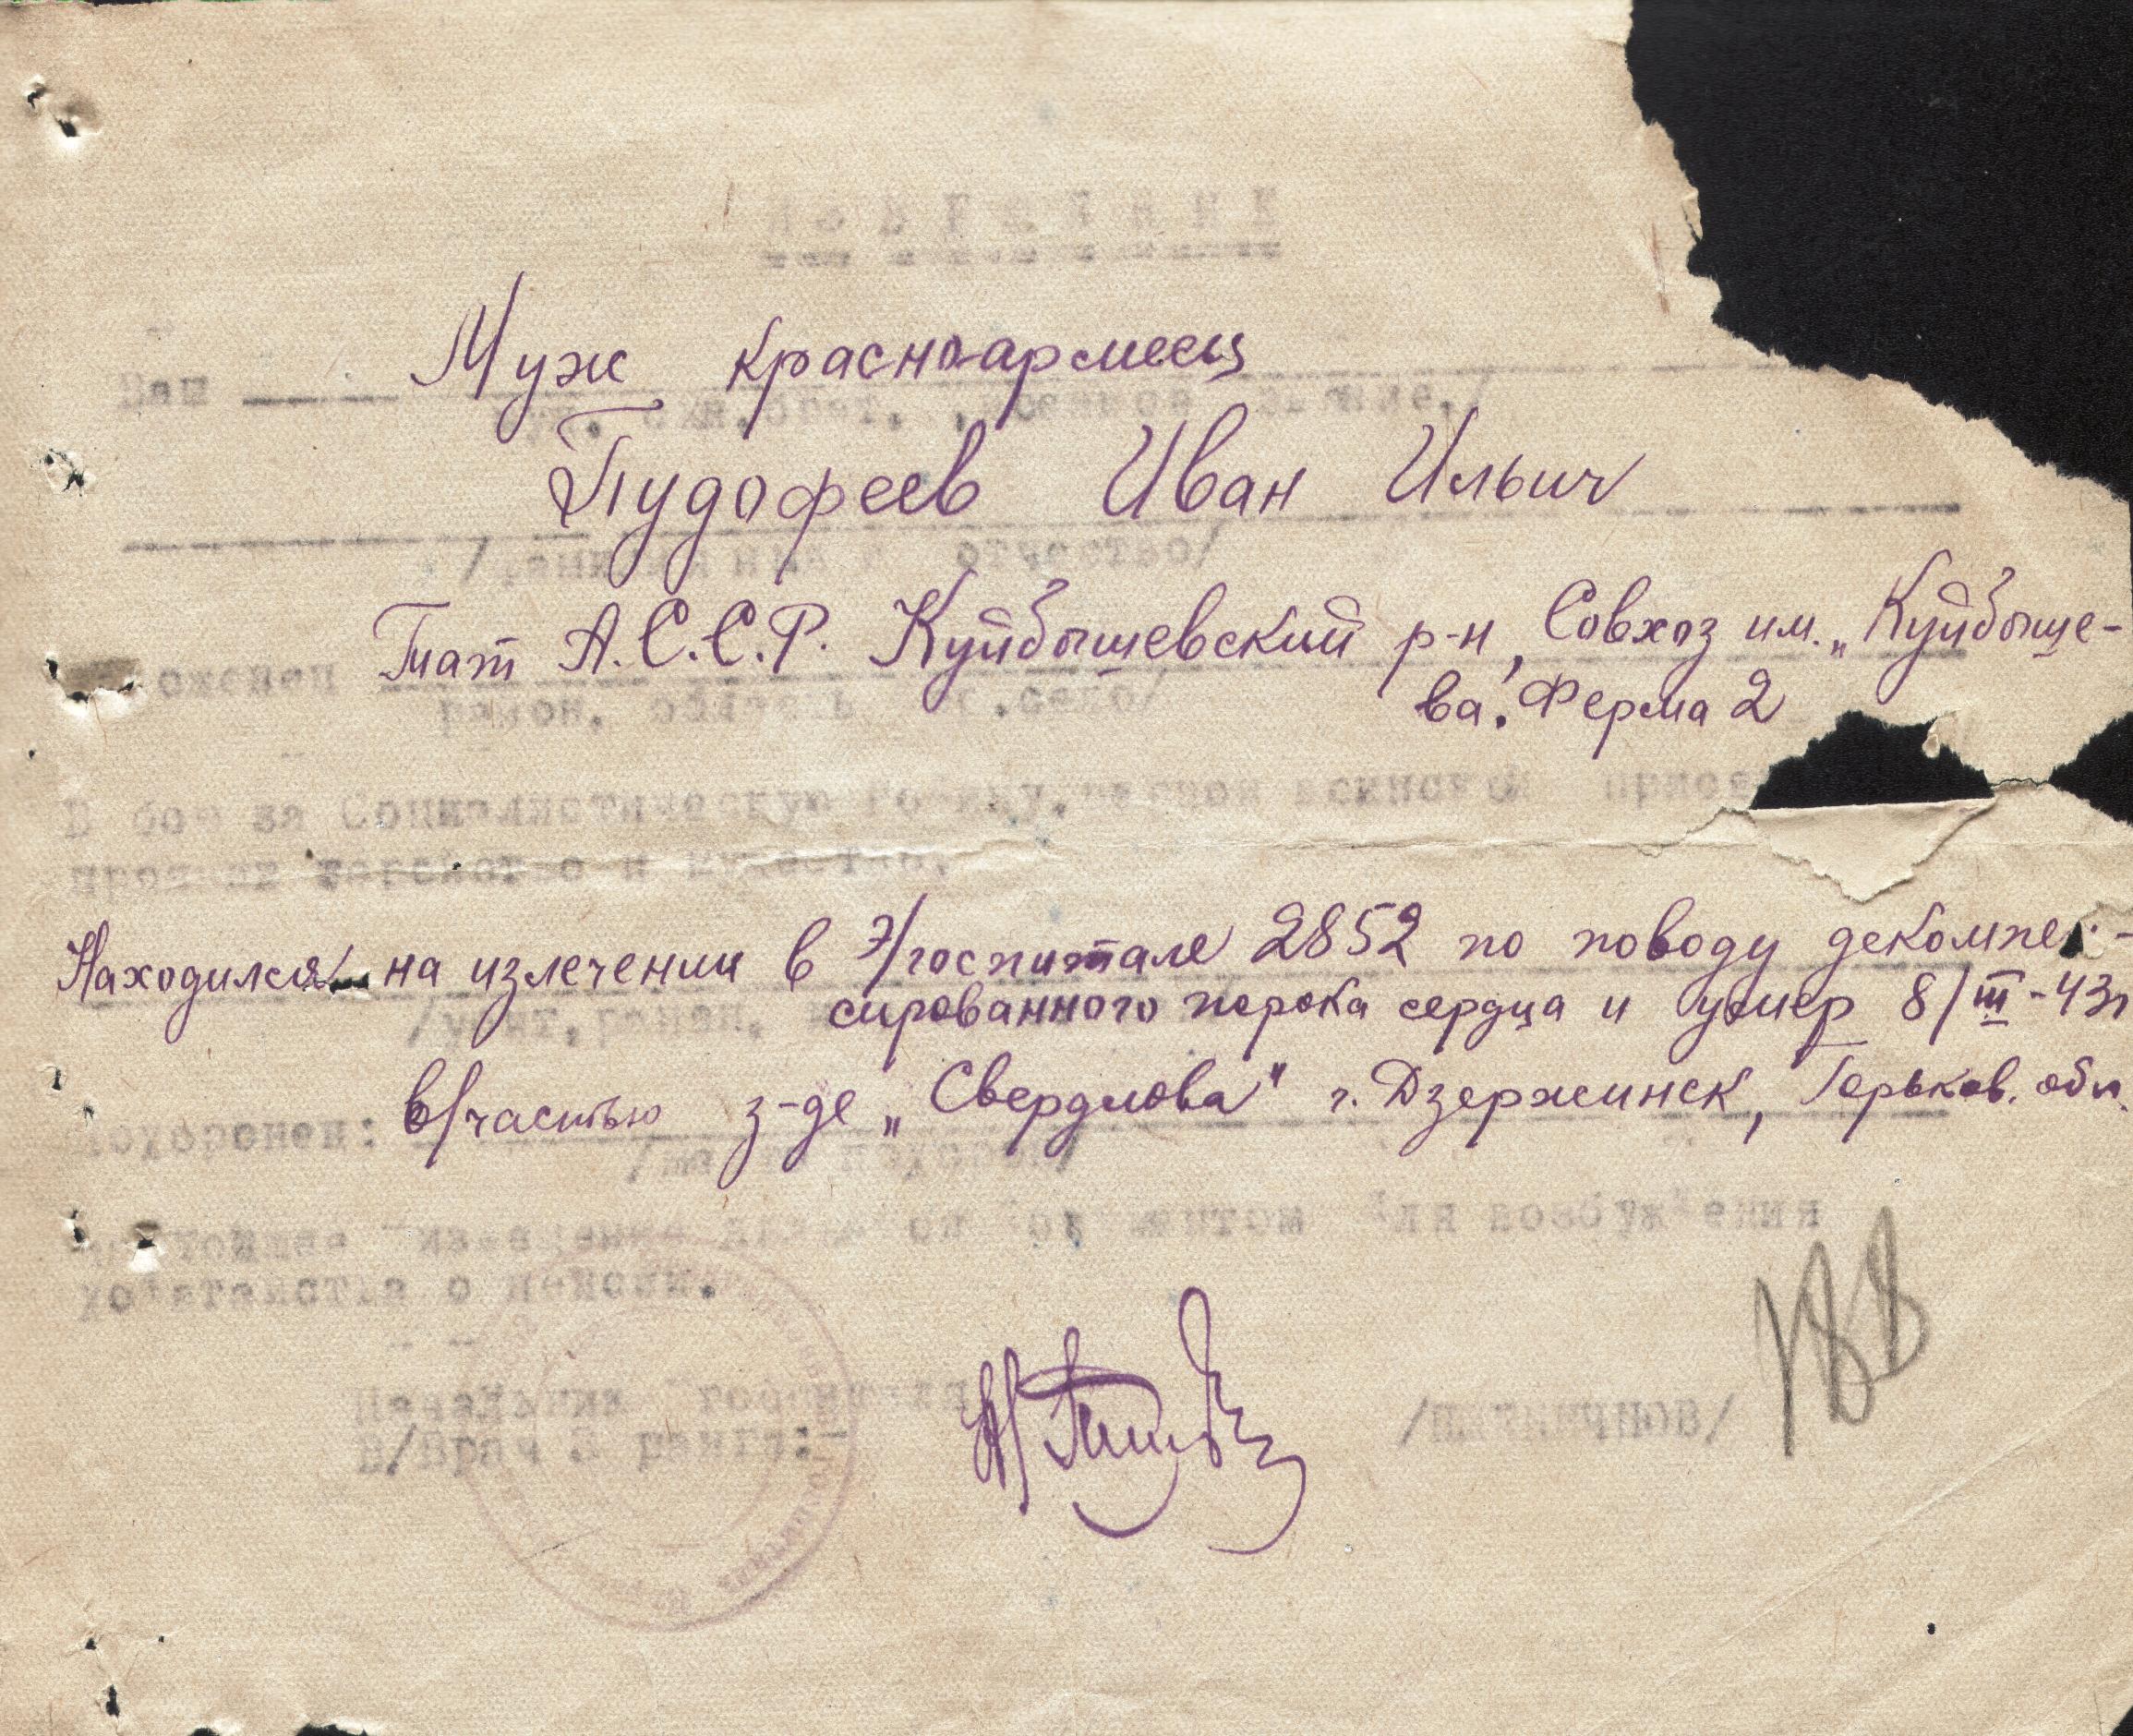 Муж красноармеец
Ваш
Пудофеев Иван Ильич
отчество/
Тат А.С.С.Р. Куйбышевский р-н, Совхоз им. „Куйбыше-
ва. Ферма 2
район, область с.село/
В бою за Социалистическую Родину, верный воинской
проявив геройство и мужество,
Находился на излечении в Э/госпитале 2852 по поводу декомпен-
сированного порока сердца и умер 8/III-43г
похоронен: в/частью з-де „Свердлова" г. Дзержинск, Горьков. обл.
извещение является документом для возбуждения
ходатайства о пенсии.
Начальник госпиталя
В/Врач ранга:-